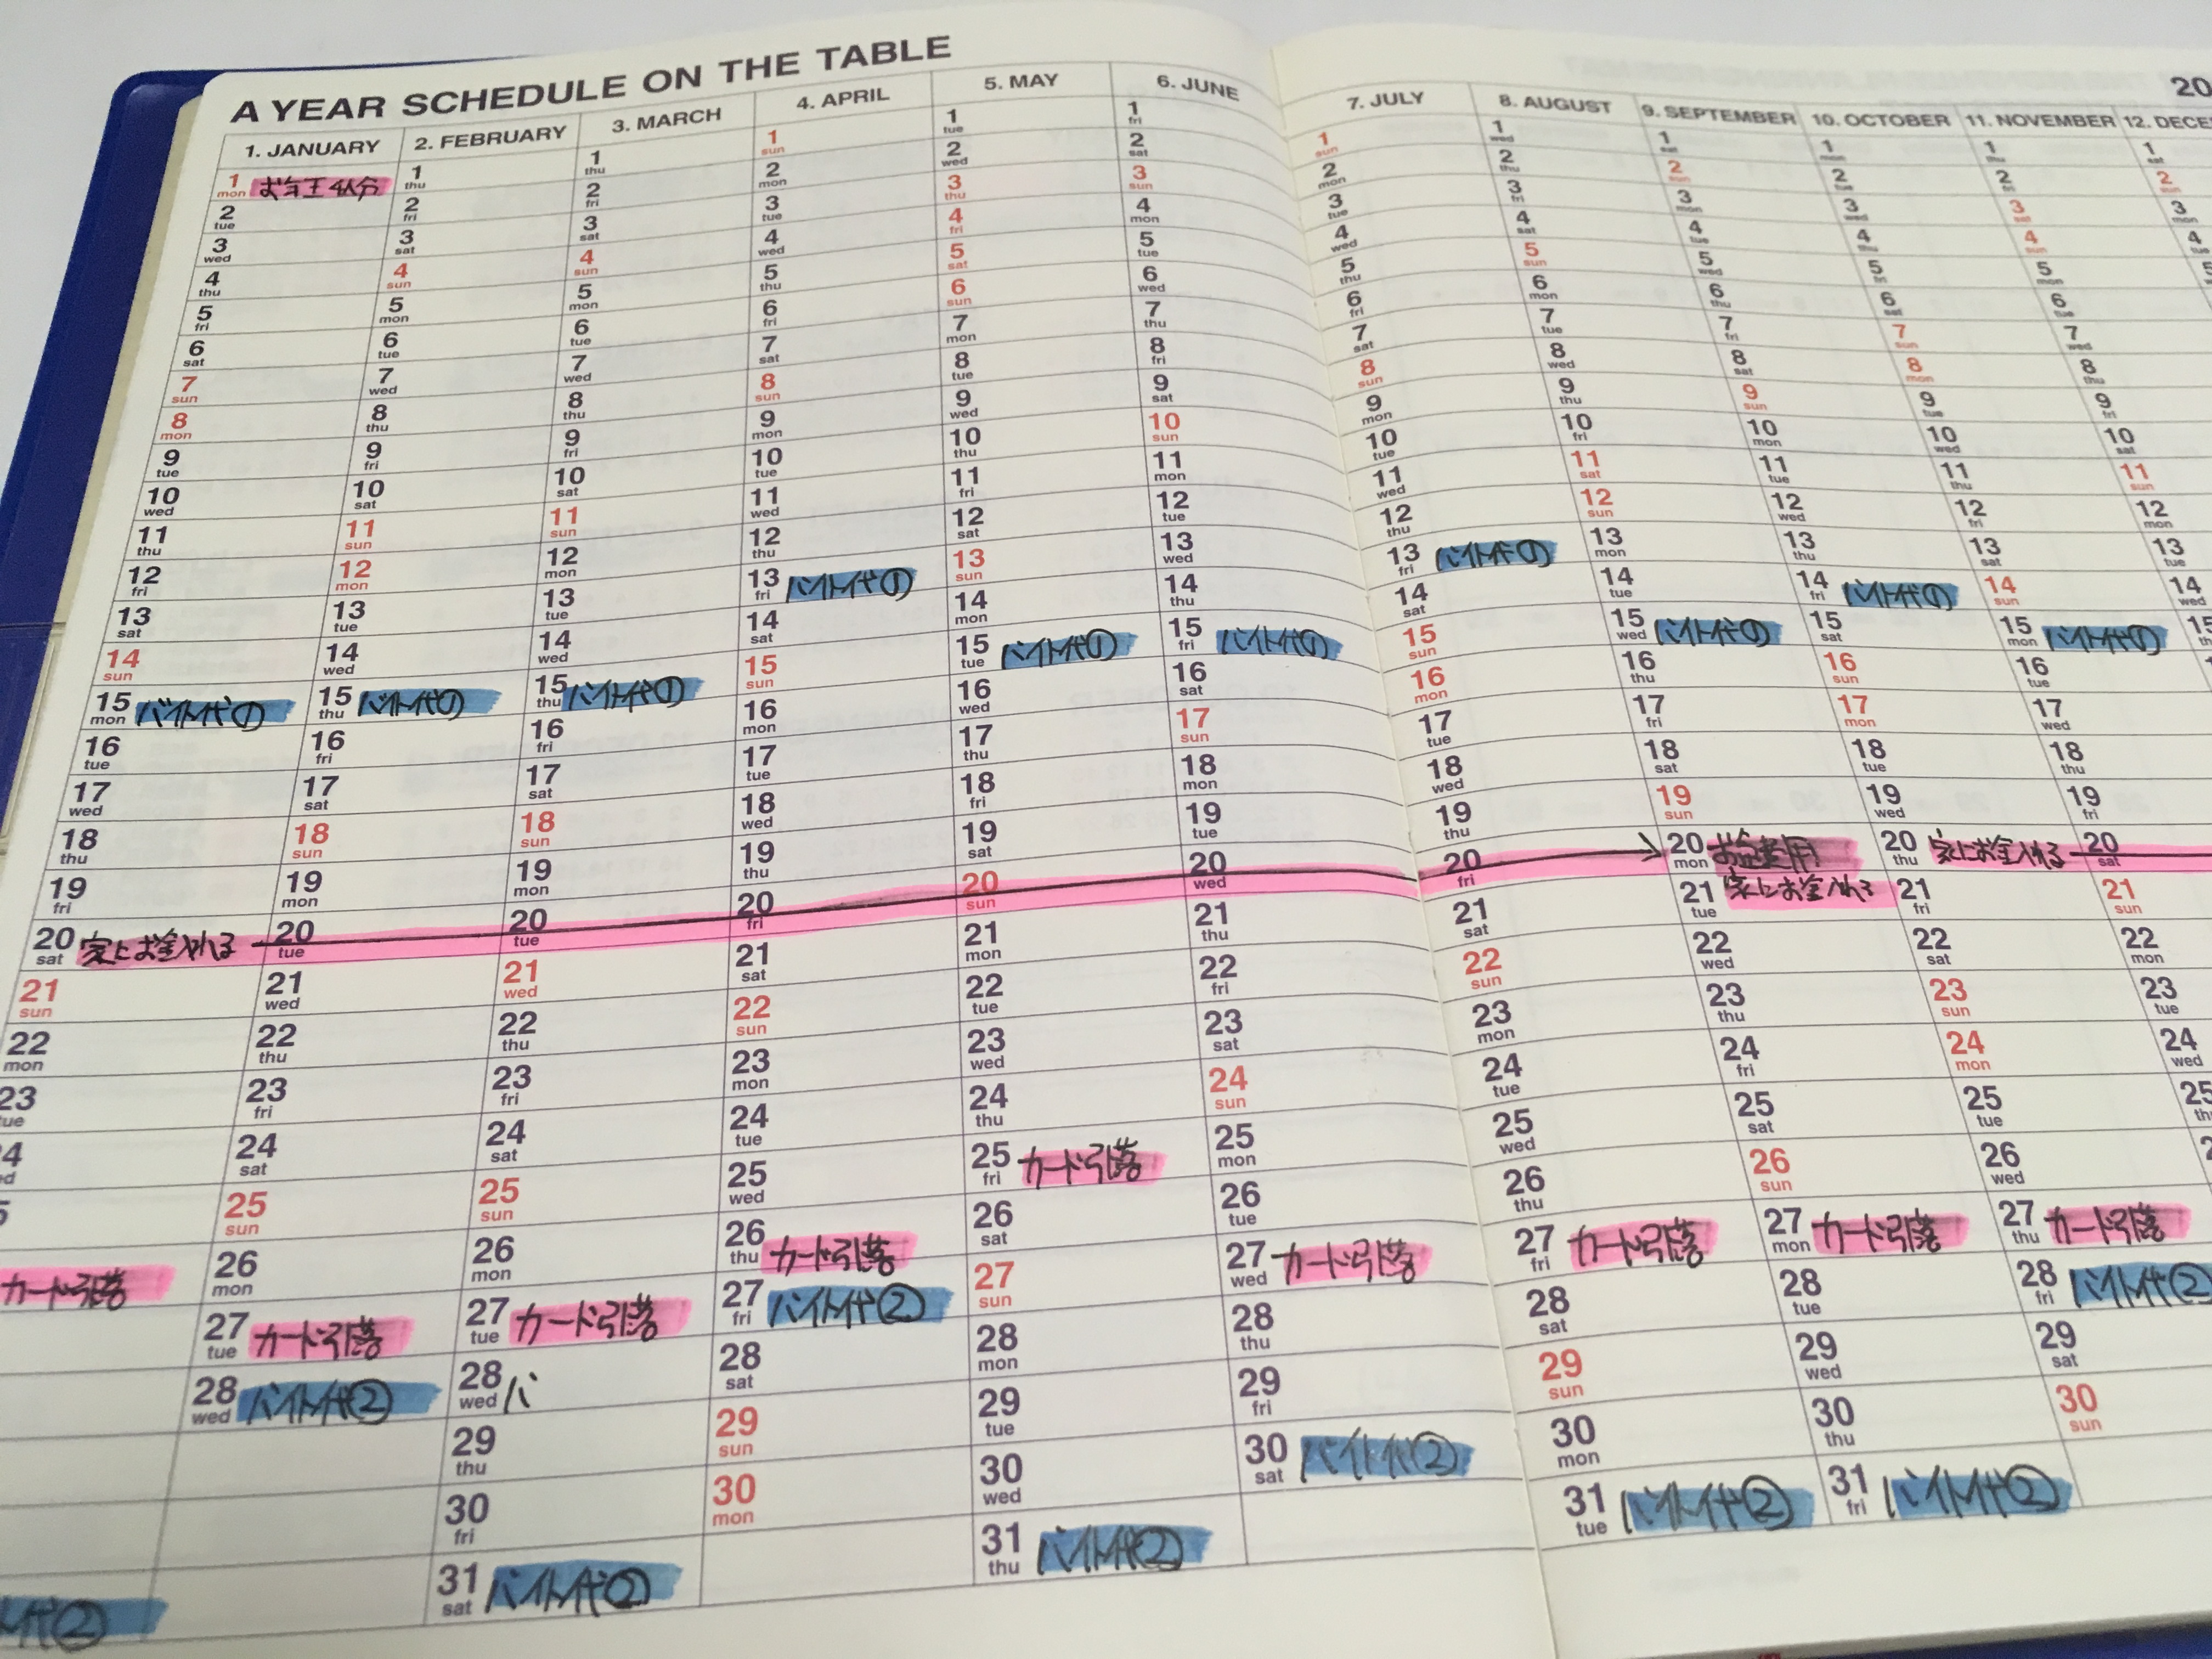 A YEAR SCHEDULE ON THE TABLE
20
1. JANUARY
1 mon お年玉4人分
2 tue
3 wed
4 thu
5 fri
6 sat
7 sun
8 mon
9 tue
10 wed
11 thu
12 fri
13 sat
14 sun
15 mon バイト代①
16 tue
17 wed
18 thu
19 fri
20 sat 家にお金入れる
21 sun
22 mon
23
カード引落
代②
2. FEBRUARY
1 thu
2 fri
3 sat
4 sun
5 mon
6 tue
7 wed
8 thu
9 fri
10 sat
11 sun
12 mon
13 tue
14 wed
15 thu バイト代①
16 fri
17 sat
18 sun
19 mon
20 tue
21 wed
22 thu
23 fri
24 sat
25 sun
26 mon
27 tue カード引落
28 wed バイト代②
3. MARCH
1 thu
2 fri
3 sat
4 sun
5 mon
6 tue
7 wed
8 thu
9 fri
10 sat
11 sun
12 mon
13 tue
14 wed
15 thu バイト代①
16 fri
17 sat
18 sun
19 mon
20 tue
21 wed
22 thu
23 fri
24 sat
25 sun
26 mon
27 tue カード引落
28 wed バ
29 thu
30 fri
31 sat バイト代②
4. APRIL
1 sun
2 mon
3 tue
4 wed
5 thu
6 fri
7 sat
8 sun
9 mon
10 tue
11 wed
12 thu
13 fri バイト代①
14 sat
15 sun
16 mon
17 tue
18 wed
19 thu
20 fri
21 sat
22 sun
23 mon
24 tue
25 wed
26 thu カード引落
27 fri バイト代②
28 sat
29 sun
30 mon
5. MAY
1 tue
2 wed
3 thu
4 fri
5 sat
6 sun
7 mon
8 tue
9 wed
10 thu
11 fri
12 sat
13 sun
14 mon
15 tue バイト代①
16 wed
17 thu
18 fri
19 sat
20 sun
21 mon
22 tue
23 wed
24 thu
25 fri カード引落
26 sat
27 sun
28 mon
29 tue
30 wed
31 thu バイト代②
6. JUNE
1 fri
2 sat
3 sun
4 mon
5 tue
6 wed
7 thu
8 fri
9 sat
10 sun
11 mon
12 tue
13 wed
14 thu
15 fri バイト代①
16 sat
17 sun
18 mon
19 tue
20 wed
21 thu
22 fri
23 sat
24 sun
25 mon
26 tue
27 wed カード引落
28 thu
29 fri
30 sat バイト代②
7. JULY
1 sun
2 mon
3 tue
4 wed
5 thu
6 fri
7 sat
8 sun
9 mon
10 tue
11 wed
12 thu
13 fri バイト代①
14 sat
15 sun
16 mon
17 tue
18 wed
19 thu
20 fri
21 sat
22 sun
23 mon
24 tue
25 wed
26 thu
27 fri カード引落
28 sat
29 sun
30 mon
31 tue バイト代②
8. AUGUST
1 wed
2 thu
3 fri
4 sat
5 sun
6 mon
7 tue
8 wed
9 thu
10 fri
11 sat
12 sun
13 mon
14 tue
15 wed バイト代①
16 thu
17 fri
18 sat
19 sun
20 mon お盆費用
21 tue 家にお金入れる
22 wed
23 thu
24 fri
25 sat
26 sun
27 mon カード引落
28 tue
29 wed
30 thu
31 fri バイト代②
9. SEPTEMBER
1 sat
2 sun
3 mon
4 tue
5 wed
6 thu
7 fri
8 sat
9 sun
10 mon
11 tue
12 wed
13 thu
14 fri バイト代①
15 sat
16 sun
17 mon
18 tue
19 wed
20 thu 家にお金入れる
21 fri
22 sat
23 sun
24 mon
25 tue
26 wed
27 thu カード引落
28 fri バイト代②
29 sat
30 sun
10. OCTOBER
1 mon
2 tue
3 wed
4 thu
5 fri
6 sat
7 sun
8 mon
9 tue
10 wed
11 thu
12 fri
13 sat
14 sun
15 mon バイト代①
16 tue
17 wed
18 thu
19 fri
20 sat
21 sun
22 mon
23 tue
24 wed
25
11. NOVEMBER
1 thu
2 fri
3 sat
4 sun
5 mon
6 tue
7 wed
8 thu
9 fri
10 sat
11 sun
12 mon
13 tue
14 wed
15
12. DECE
1 sat
2 sun
3 mon
4 tue
5